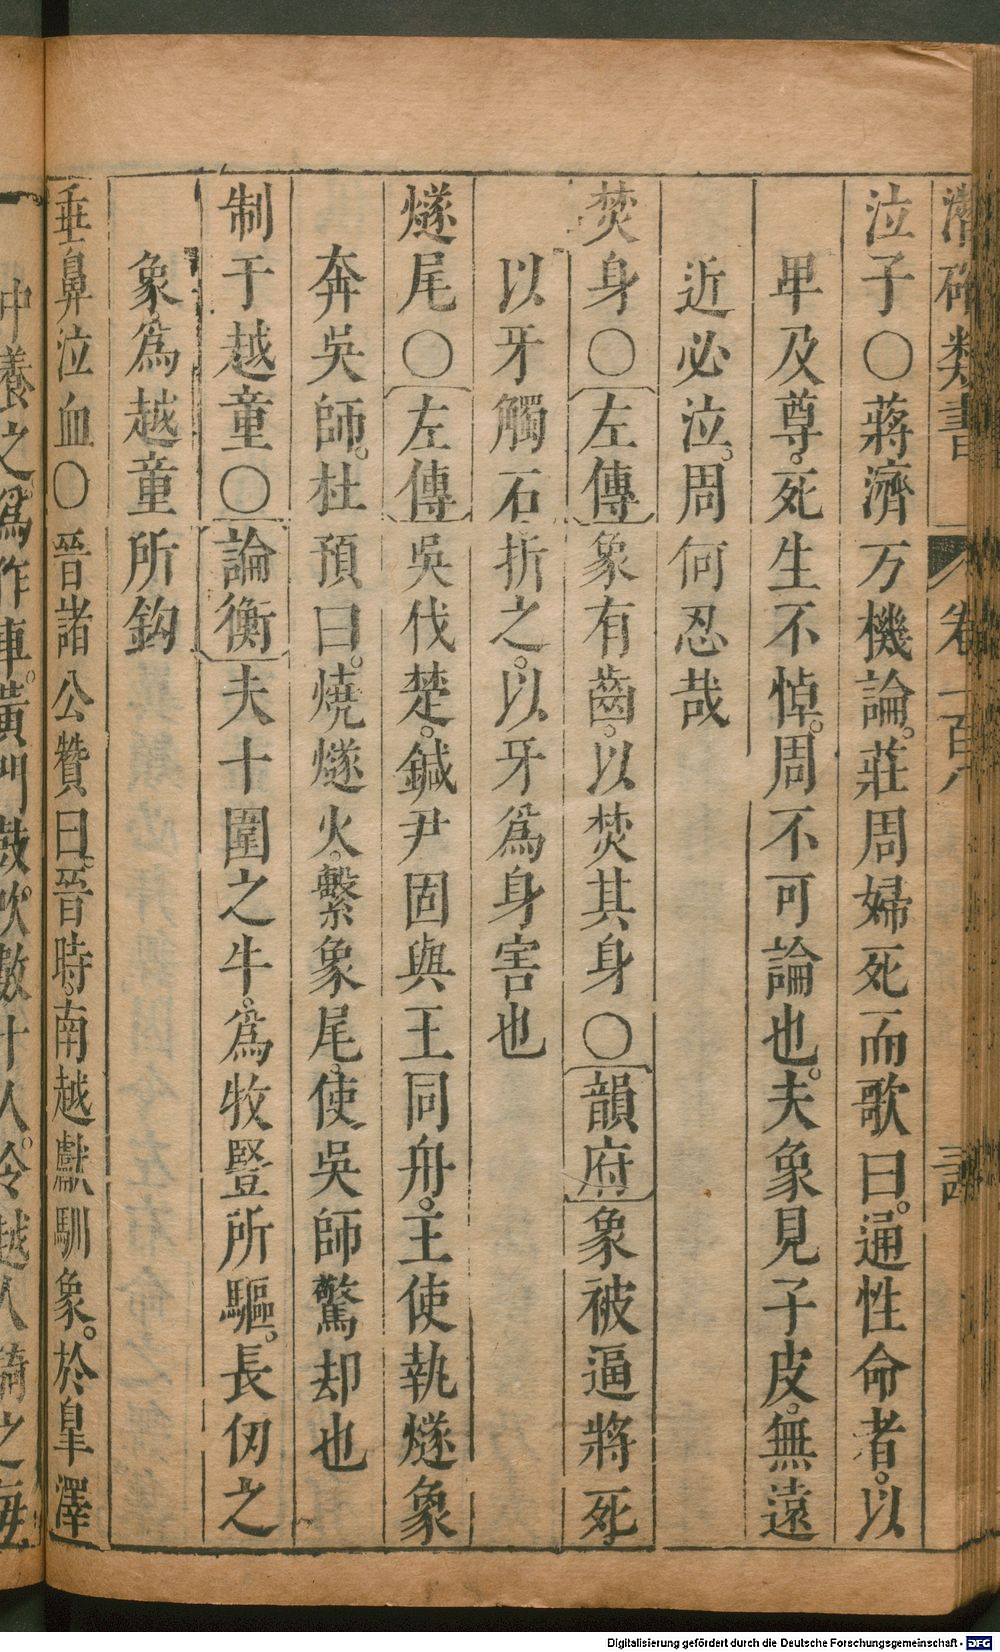 潛確類書 卷一百八 三
泣子〇蔣濟万機論。莊周婦死而歌曰。通性命者。以
卑及尊。死生不悼。周不可論也。夫象見子皮。無遠
近必泣。周何忍哉
焚身〇左傳象有齒。以焚其身〇韻府象被逼將死
以牙觸石折之。以牙爲身害也
燧尾〇左傳吳伐楚。鍼尹固與王同舟。王使執燧象
奔吳師。杜預曰。燒燧火。繫象尾。使吳師驚却也
制于越童〇論衡夫十圍之牛。爲牧豎所驅。長仞之
象爲越童所鈎
垂鼻泣血〇晉諸公贊曰。晉時。南越獻馴象。於皐澤
中養之。爲作車。黃門鼓吹數十人。令越人騎之每
Digitalisierung gefördert durch die Deutsche Forschungsgemeinschaft - DFG